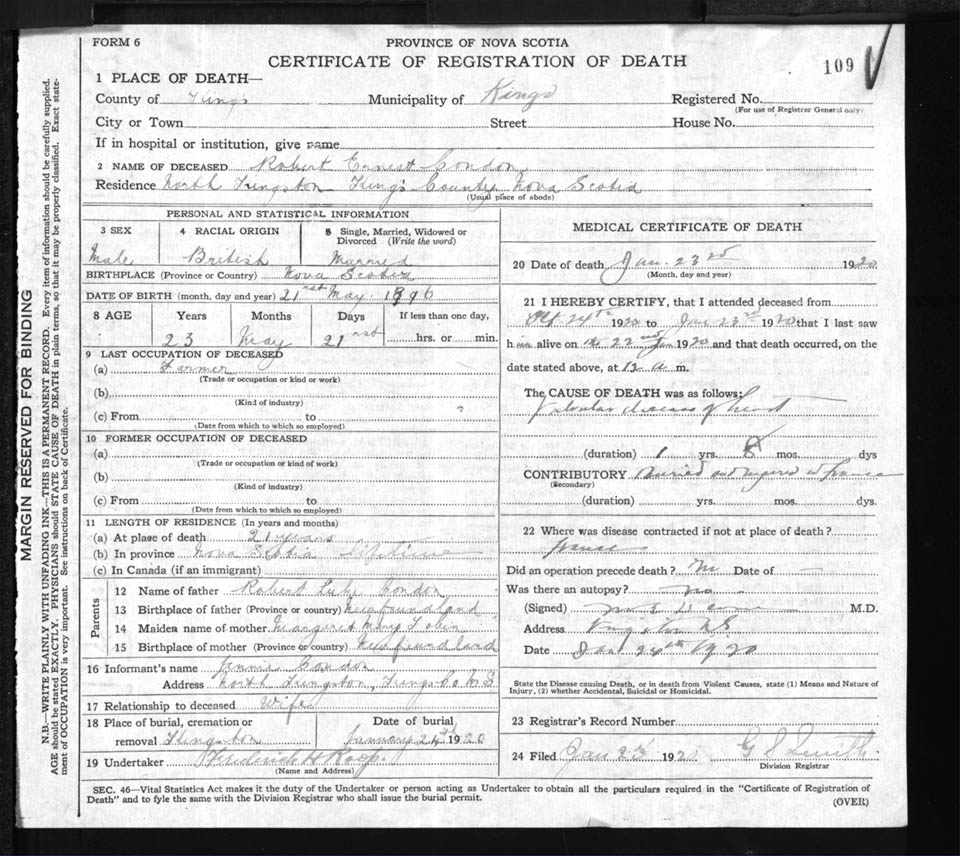 FORM 6
PROVINCE OF NOVA SCOTIA
CERTIFICATE OF REGISTRATION OF DEATH
109
1 PLACE OF DEATH—
County of Kings Municipality of Kings Registered No.
(For use of Registrar General only)
City or Town Street House No.
If in hospital or institution, give name
2 NAME OF DECEASED Robert Ernest Condon
Residence North Kingston King's County Nova Scotia
(Usual place of abode)
PERSONAL AND STATISTICAL INFORMATION
3 SEX 4 RACIAL ORIGIN 5 Single, Married, Widowed or Divorced (Write the word)
Male British Married
BIRTHPLACE (Province or Country) Nova Scotia
DATE OF BIRTH (month, day and year) 21st May 1896
8 AGE Years Months Days If less than one day,
23 May 21st hrs. or min.
9 LAST OCCUPATION OF DECEASED
(a) Farmer
(Trade or occupation or kind or work)
(b)
(Kind of industry)
(c) From to
(Date from which to which so employed)
10 FORMER OCCUPATION OF DECEASED
(a)
(Trade or occupation or kind of work)
(b)
(Kind of industry)
(c) From to
(Date from which to which so employed)
11 LENGTH OF RESIDENCE (In years and months)
(a) At place of death 21 years
(b) In province Nova Scotia lifetime
(c) In Canada (if an immigrant)
Parents
12 Name of father Robert Luke Condon
13 Birthplace of father (Province or country) Newfoundland
14 Maiden name of mother Margaret Mary Tobin
15 Birthplace of mother (Province or country) Newfoundland
16 Informant's name Jennie Condon
Address North Kingston, Kings Co N S
17 Relationship to deceased Wife
18 Place of burial, cremation or removal Kingston Date of burial January 24th 1920
19 Undertaker Frederick H Roop.
(Name and Address)
MEDICAL CERTIFICATE OF DEATH
20 Date of death Jan. 23rd 1920
(Month, day and year)
21 I HEREBY CERTIFY, that I attended deceased from
24th 1920 to Jan 23rd 1920 that I last saw
him alive on the 22nd Jan 1920 and that death occurred, on the
date stated above, at 12 a m.
The CAUSE OF DEATH was as follows:
Valvular disease of heart
(duration) 1 yrs. 8 mos. dys
CONTRIBUTORY Buried and injured in France
(Secondary)
(duration) yrs. mos. dys.
22 Where was disease contracted if not at place of death?
France
Did an operation precede death? No Date of —
Was there an autopsy? no
(Signed) M.D.
Address Kingston NS
Date Jan 24th 1920
State the Disease causing Death, or in death from Violent Causes, state (1) Means and Nature of Injury, (2) whether Accidental, Suicidal or Homicidal.
23 Registrar's Record Number
24 Filed Jan 1920 G S Smith
Division Registrar
SEC. 46—Vital Statistics Act makes it the duty of the Undertaker or person acting as Undertaker to obtain all the particulars required in the "Certificate of Registration of
Death" and to fyle the same with the Division Registrar who shall issue the burial permit.
(OVER)
MARGIN RESERVED FOR BINDING
N.B.—WRITE PLAINLY WITH UNFADING INK—THIS IS A PERMANENT RECORD. Every item of information should be carefully supplied.
AGE should be stated EXACTLY. PHYSICIANS should STATE CAUSE OF DEATH in plain terms, so that it may be properly classified. Exact state-
ment of OCCUPATION is very important. See instructions on back of Certificate.